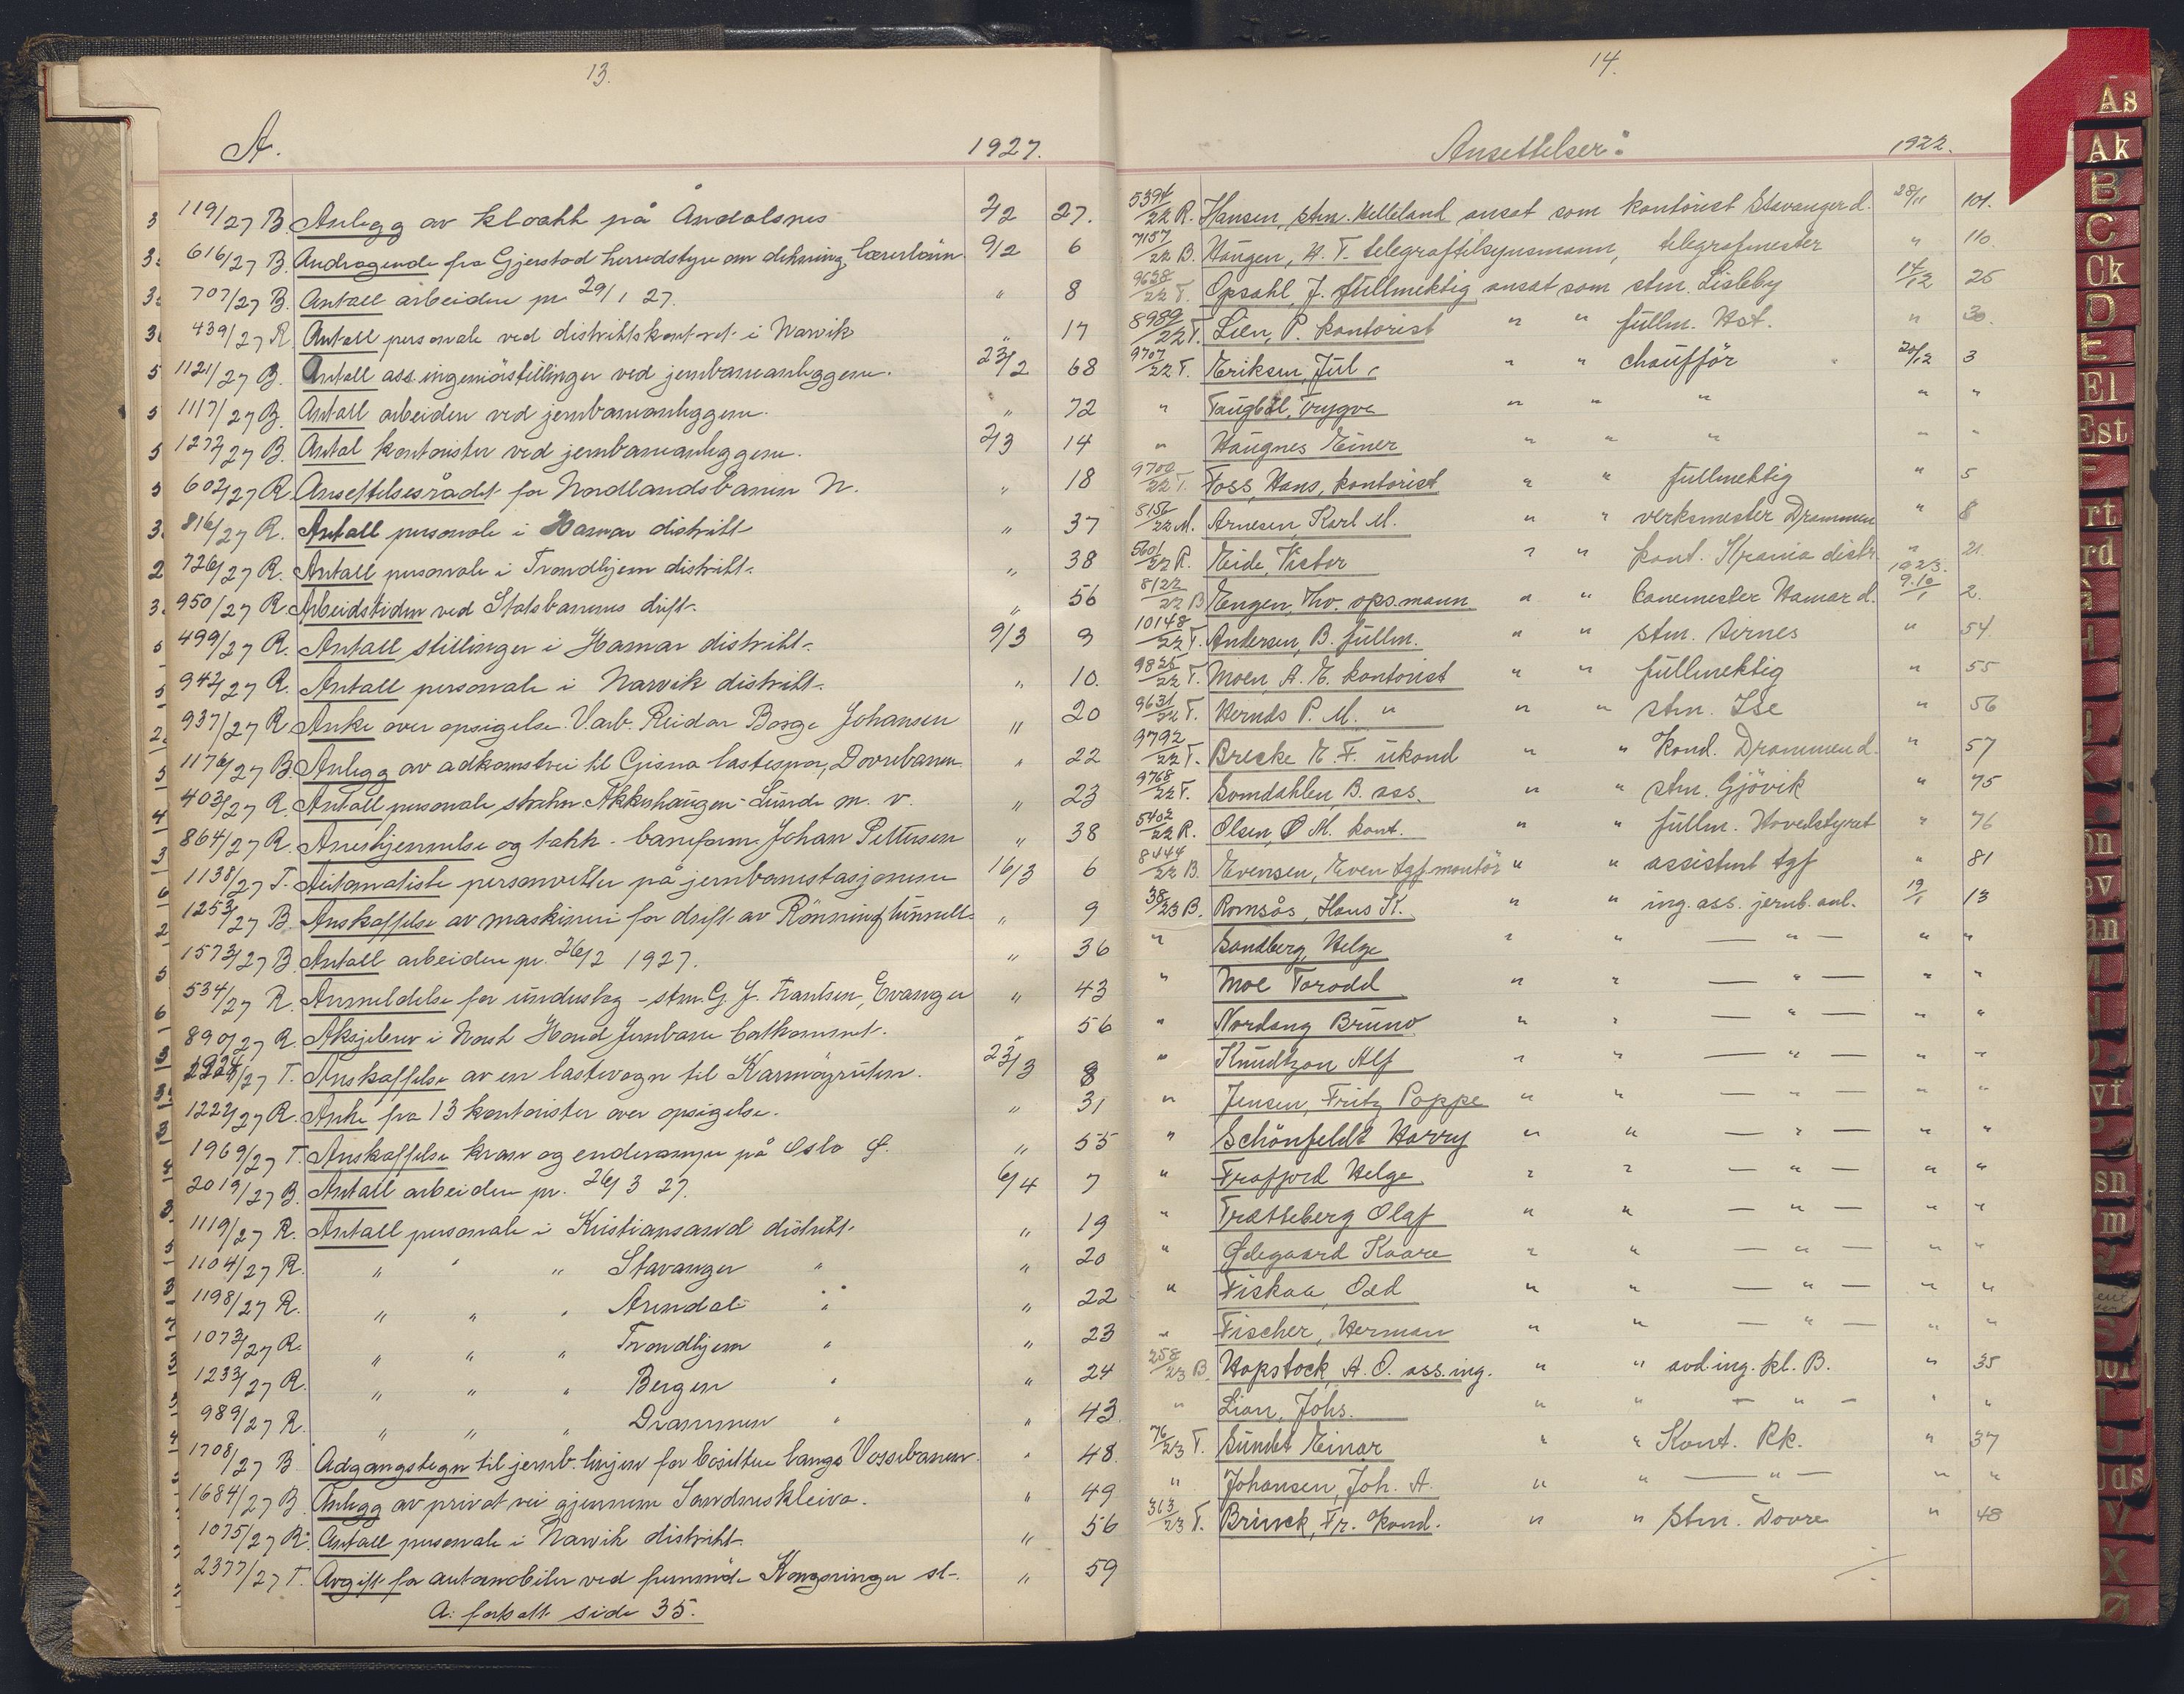 13.
A. 1927.
119/27 B. Anlegg av kloakk på Åndalsnes 2/2 27.
616/27 B. Andragende fra Gjerstad herredstyre om dekning, lærerlönn 9/2 6
707/27 B. Antall arbeidere pr. 29/1 27. " 8
439/27 R. Antall personale ved distriktskontoret i Narvik " 17
1121/27 B. Antall ass. ingeniörstillinger ved jernbaneanleggene. 23/2 68
1117/27 B. Antall arbeidere ved jernbaneanleggene. " 72
1277/27 B. Antal kontorister ved jernbaneanleggene. 2/3 14
602/27 R. Ansettelsesrådet for Nordlandsbanen N. " 18
816/27 R. Antall personale i Hamar distrikt " 37
726/27 R. Antall personale i Trondhjem distrikt. " 38
950/27 R. Arbeidstiden ved Statsbanenes drift. " 56
499/27 R. Antall stillinger i Hamar distrikt. 9/3 9
942/27 R. Antall personale i Narvik distrikt. " 10.
937/27 R. Anke over opsigelse. V.arb. Reidar Borge Johansen " 20
1176/27 B. Anlegg av adkomstvei til Gisna lastespor, Dovrebanen. " 22
403/27 R. Antall personale strekn. Akkerhaugen - Lunde m. v. " 23
864/27 R. Anerkjennelse og takk - baneform. Johan Pettersen " 38
1138/27 T. Automatiske personvekter på jernbanestasjonene 16/3 6
1253/27 B. Anskaffelse av maskineri for drift av Rönningtunnelt. " 9
1573/27 B. Antall arbeidere pr. 26/2 1927. " 36
534/27 R. Anmeldelse for underslag - stm. G. J. Frantsen, Evanger " 43
890/27 R. Aksjebrev i Norsk Hoved Jernbane " 56
2224/27 T. Anskaffelse av en lastevogn til Karmöyruten. 23/3 8
1222/27 R. Anke fra 13 kontorister over opsigelse. " 31
1969/27 T. Anskaffelse kraner og enderampe på Oslo Ø. " 55
2019/27 B. Antall arbeidere pr. 26/3 27. 6/4 7
1119/27 R. Antall personale i Kristiansand distrikt. " 19
1104/27 R. " " " Stavanger " " 20
1198/27 R. " " " Arendal " " 22
1073/27 R. " " " Trondhjem " " 23
1233/27 R. " " " Bergen " " 24
989/27 R. " " " Drammen " " 43
1708/27 B. Adgangstegn til jernb. linjen for bosittere langs Vossebanen. " 48.
1684/27 B. Anlegg av privat vei gjennem Sandneskleiva. " 49
1075/27 R. Antall personale i Narvik distrikt. " 56
2377/27 T. Avgift for automobiler ved fremmöte Kongsvinger st. " 59
A. fortsatt side 35.
14.
Ansettelser: 1922.
5394/22 R. Hansen, stm. Helleland ansat som kontorist Stavanger d. 28/11 101.
7157/22 B. Haugen, H. T. telegraftilsynsmann, telegrafmester " 110.
9638/22 T. Opsahl, J. fullmektig ansat som stm. Lisleby 14/12 25
8989/22 T. Lien, P. kontorist " " fullm. Hst. " 30.
9707/22 T. Eriksen, Jul. " " chaufför 20/12 3
" Taugböl, Trygve " " " " "
" Haugnes Einer " " " " "
9709/22 T. Foss, Hans, kontorist " " fullmektig " 5
8156/22 M. Arnesen, Karl M. " " verksmester Drammen " 8
5601/22 R. Eide, Victor " " kont. Krania distr. " 21.
1923.
8122/22 B Engen, Thv. ops.mann " " banemester Hamar d. 9.10/1 2.
10148/22 T. Andersen, B. fullm. " " stm. Aarnes " 54.
9825/22 T. Moen, A. E. kontorist " " fullmektig " 55
9631/22 T. Hernds P. M. " " " stm. Ise " 56
9792/22 T. Brecke E. F. ukond " " Kond. Drammen d. " 57
9768/22 T. Somdahlen, B. ass. " " stm. Gjövik " 75
5402/22 R. Olsen, O M. kont. " " fullm. Hovedstyret " 76
8444/22 B. Evensen, Even tgf.montör " " assistent tgf " 81
38/23 B. Romsås, Hans K. " " ing. ass. jernb. anl. 19/1 13
" Sandberg, Helge " " — " — " "
" Moe Torodd " " — " — " "
" Nordang Bruno " " — " — " "
" Knudtzon Alf " " — " — " "
" Jensen, Fritz Poppe " " — " — " "
" Schönfeldt Harry " " — " — " "
" Frafjord Helge " " — " — " "
" Tratteberg Olaf " " — " — " "
" Ødegaard Kaare " " — " — " "
" Fiskaa, Odd " " — " — " "
" Fischer, Herman " " — " — " "
258/23 B. Hopstock, A. O. ass. ing. " " avd. ing. kl. B. " 35
" Lian, Johs. " " — " — " "
76/23 T. Sundt Einar " " Kont. Rk. " 37
" Johansen, Joh. A. " " — " — " "
363/23 T. Brinck, Fr. Kond. " " stm. Dovre " 48
As
Ak
B
C
Ck
D
E
El
Est